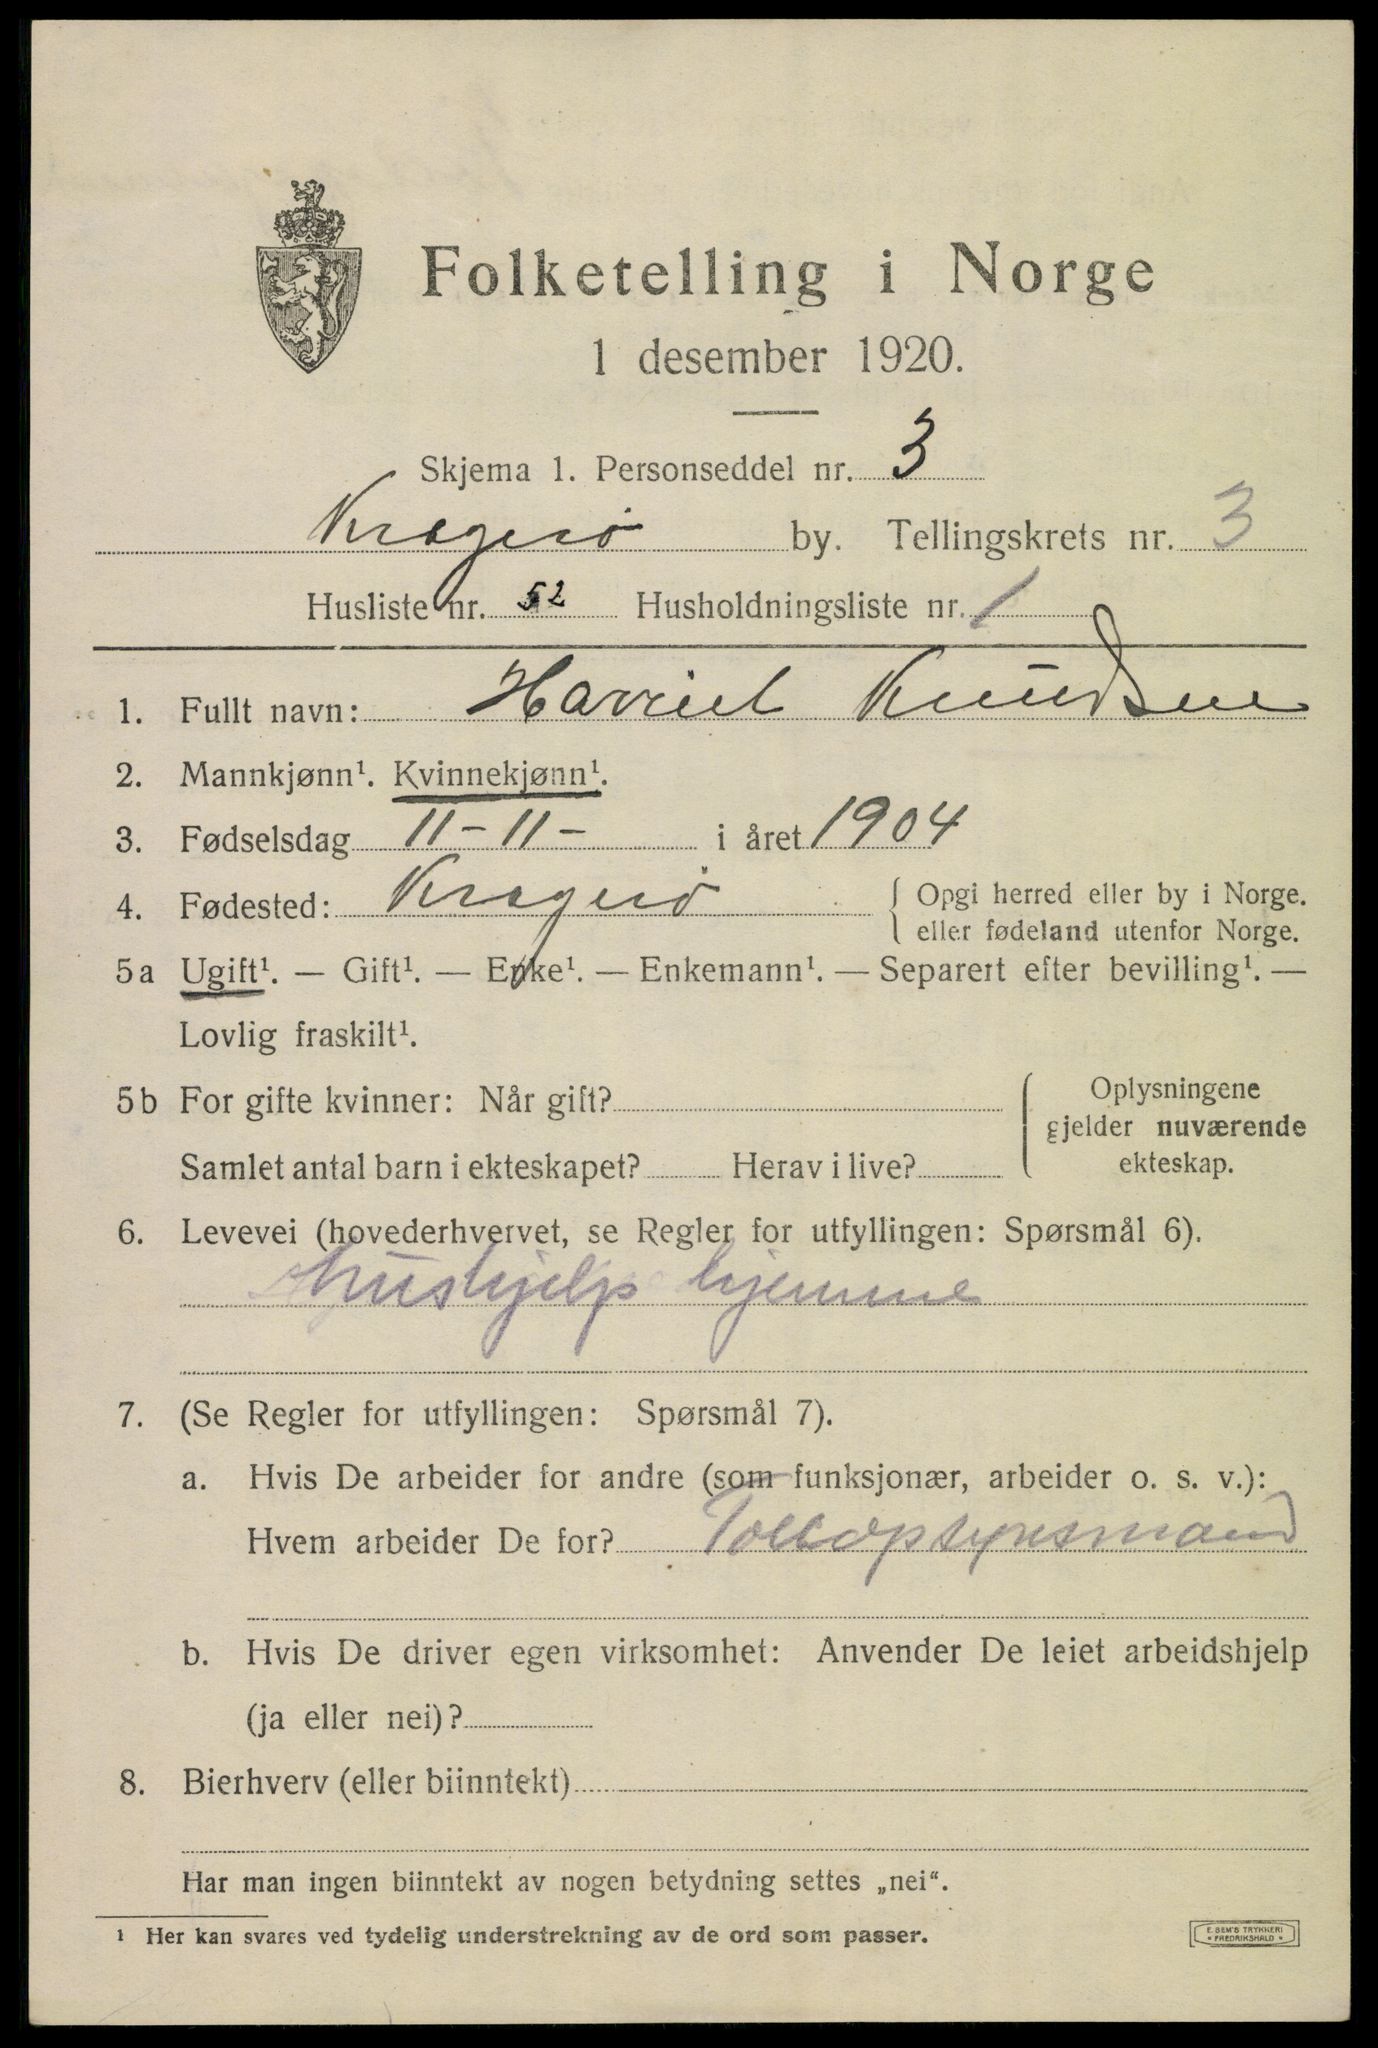 Folketelling i Norge
1 desember 1920.
Skjema 1. Personseddel nr. 3
Kragerø by. Tellingskrets nr. 3
Husliste nr. 52 Husholdningsliste nr. 1
1. Fullt navn: Harriet Knudsen
2. Mannkjønn¹. Kvinnekjønn¹.
3. Fødselsdag 11-11- i året 1904
4. Fødested: Kragerø { Opgi herred eller by i Norge.
eller fødeland utenfor Norge.
5a Ugift¹. — Gift¹. — Enke¹. — Enkemann¹. — Separert efter bevilling¹. —
Lovlig fraskilt¹.
5b For gifte kvinner: Når gift? { Oplysningene
gjelder nuværende
Samlet antal barn i ekteskapet? Herav i live? ekteskap.
6. Levevei (hovederhvervet, se Regler for utfyllingen: Spørsmål 6).
Hushjelp hjemme
7. (Se Regler for utfyllingen: Spørsmål 7).
a. Hvis De arbeider for andre (som funksjonær, arbeider o. s. v.):
Hvem arbeider De for? Toldopsynsmand
b. Hvis De driver egen virksomhet: Anvender De leiet arbeidshjelp
(ja eller nei)?
8. Bierhverv (eller biinntekt)
Har man ingen biinntekt av nogen betydning settes „nei“.
¹ Her kan svares ved tydelig understrekning av de ord som passer.
E. SEM'S TRYKKERI
FREDRIKSHALD